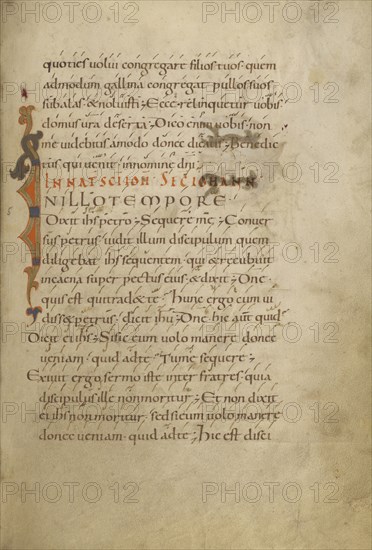 quoties volui congregare filios tuos quem
admodum gallina congregat pullos suos
sub alas & noluisti Ecce relinquetur vobis
domus vra deserta Dico enim vobis non
me videbitis amodo donec dicatis Benedic
tus qui venit in nomine dni
IN NAT SCI IOH
IN ILLO TEMPORE
Dixit ihs petro Sequere me Conver
sus petrus vidit illum discipulum quem
diligebat ihs sequentem qui & recubuit
in caena super pectus eius & dixit Dne
quis est qui trad& te Hunc ergo cum vi
diss& petrus dicit ihu Dne hic aut quid
Dicit ei ihs Sic eum volo manere donec
veniam quid ad te Tu me sequere
Exivit ergo sermo iste inter fratres quia
discipulus ille non moritur Et non dixit
ei ihs non moritur sed sic eum volo manere
donec veniam quid ad te Hic est disci